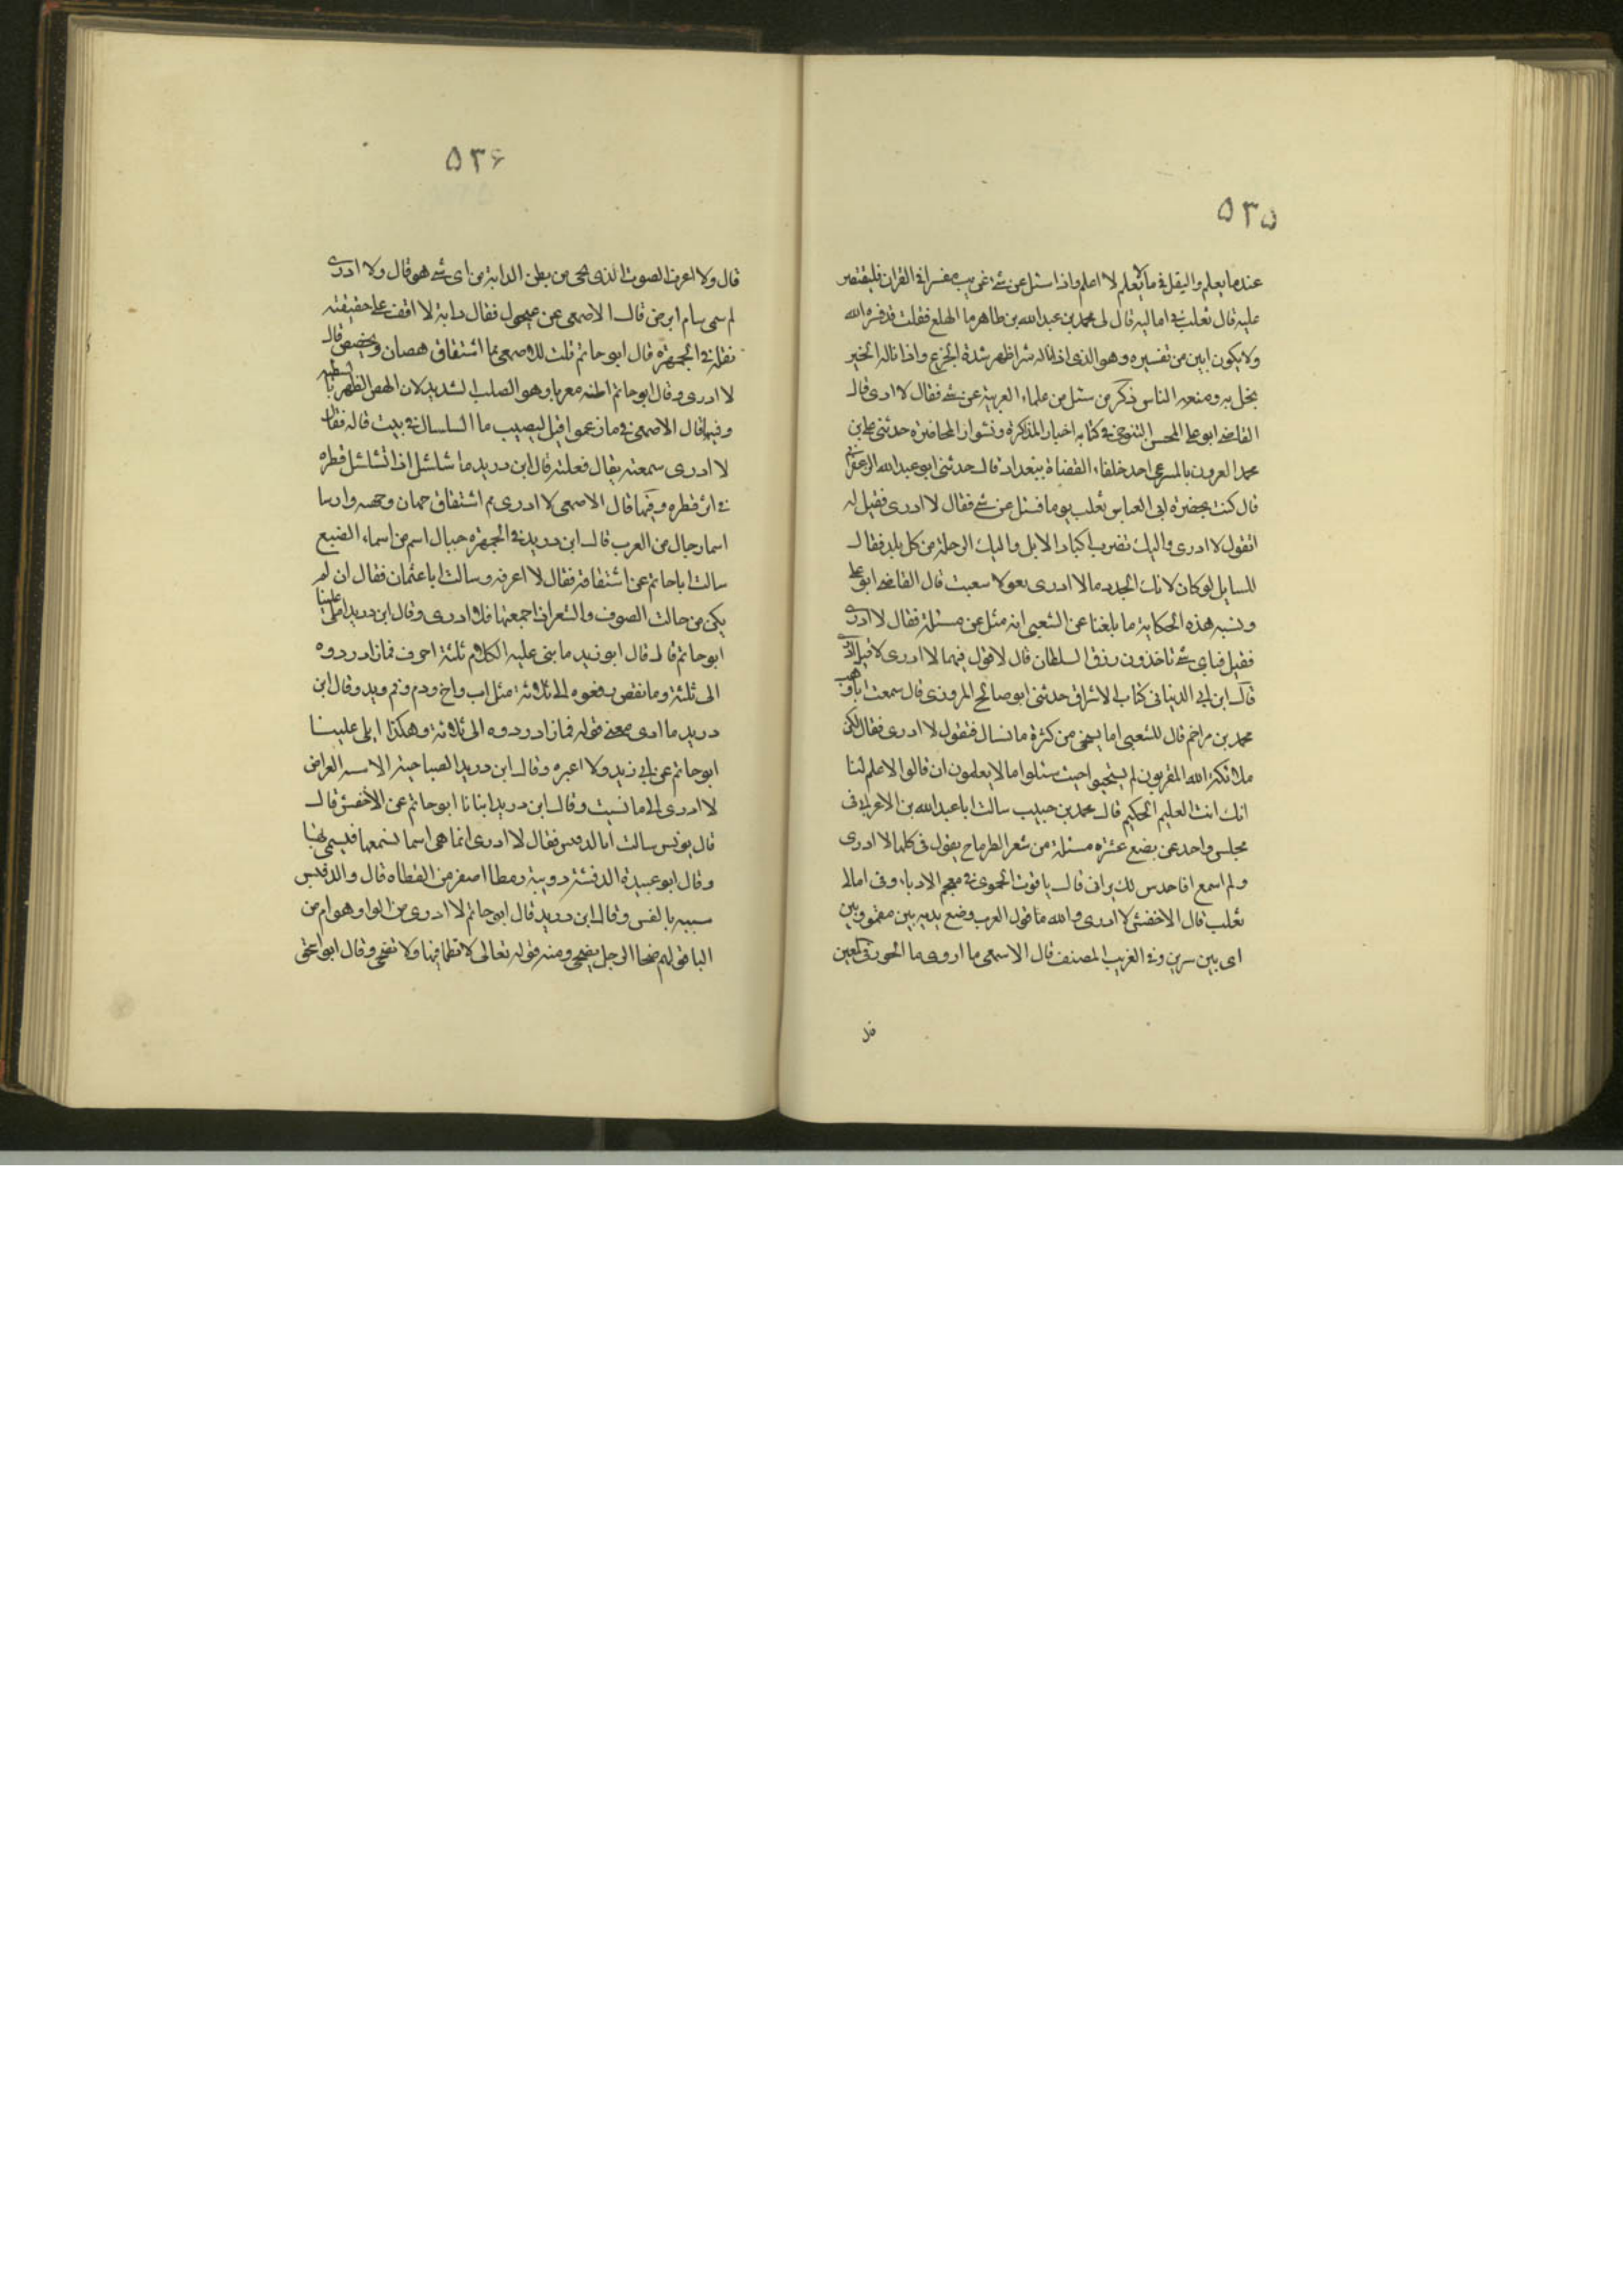 ٥٣٥
عندما يعلم واليقل فى ما لا يعلم لا اعلم واذا سئل عن شئ غريب مفسر فى القران فليقتصر
عليه قال ثعلب فى اماليه قال لى محمد بن عبدالله بن طاهر ما الهلع فقلت قد فسره الله
ولا يكون ابين من تفسيره وهو الذى اذا ناله شر اظهر شدة الجزع واذا ناله الخير
بخل به ومنعه الناس ذكر من سئل من علماء العربية عن شئ فقال لا ادرى قال
القاضى ابو على المحسن التنوخى فى كتابه اخبار المذاكرة ونشوار المحاضرة حدثنى على بن
محمد العرون بالمسرعى احد خلفاء القضاة ببغداد قال حدثنى ابو عبدالله الزعفرانى
قال كنت بحضرة ابى العباس ثعلب يوما فسئل عن شئ فقال لا ادرى فقيل له
اتقول لا ادرى واليك تضرب اكباد الابل واليك الرحلة من كل بلد فقال
للسايل لو كان لامك بعدد ما لا ادرى بعر لاستغنت قال القاضى ابو على
ونسبه هذه الحكاية ما بلغنا عن الشعبى انه سئل عن مسئلة فقال لا ادرى
فقيل فباى شئ تاخذون رزق السلطان قال لاقول فيما لا ادرى لا ادرى
قال ابن ابى الدنيا فى كتاب الاشراف حدثنى ابو صالح المروزى قال سمعت ابا وهب
محمد بن مزاحم قال للشعبى اما يستحى من كثرة ما تسال فتقول لا ادرى فقال لكن
ملائكة الله المقربون لم يستحيوا حيث سئلوا عما لا يعلمون ان قالوا لا علم لنا
انك انت العليم الحكيم قال محمد بن حبيب سالت ابا عبدالله بن الاعرابى فى
مجلس واحد عن بضع عشرة مسئلة من شعر الطرماح يقول فى كلها لا ادرى
ولم اسمع افاحدس لك براى قال ياقوت الحموى فى معجم الادباء وفى امالى
ثعلب قال الاخفش لا ادرى والله ما قول العرب وضع يديه بين مقمورتين
اى بين شرين وفى الغريب المصنف قال الاصمعى ما ادرى ما الحور فى العين
قل
٥٣٦
قال ولا اعرف الصوت الذى يجى من بطن الدابة من اى شئ هو قال ولا ادرى
لم سمى سام ابرص قال الاصمعى عن عيجول فقال دابة لا اقف على حقيقته
نقله فى الجمهرة قال ابو حاتم قلت للاصمعى مما اشتقاق هصان وهصيص قال
لا ادرى وقال ابو حاتم اظنه معربا وهو الصلب الشديد لان الهص الظهر بالنبطيه
وفيها قال الاصمعى فى ما زعموا قيل لبصيب ما الشلشال فى بيت قاله فقال
لا ادرى سمعته يقال فعلته قال ابن دريد ماء شلشل اذا تشلشل قطره
فى اثر قطره وفيها قال الاصمعى لا ادرى مم اشتقاق جمان وجهمة وارسا
اسما رجال من العرب قال ابن دريد فى الجمهرة جيال اسم من اسماء الضبع
سالت ابا حاتم عن اشتقاقه فقال لا اعرفه وسالت ابا عثمان فقال ان لم
يكن من جالت الصوف والشعر اذا جمعتها فلا ادرى وقال ابن دريد املى علينا
ابو حاتم قال قال ابو زيد ما بنى عليه الكلام ثلثة احرف فما زاد ردوه
الى ثلثة وما نقص رفعوه الى ثلاثة مثل اب واخ ودم وفم ويد وقال ابن
دريد ما ادرى معنى قوله فما زاد ردوه الى ثلاثة وهكذا املى علينا
ابو حاتم عن ابى زيد ولا اغيره وقال ابن دريد الصباحيه الاسنه العراض
لا ادرى الى ما نسبت وقال ابن دريد انبانا ابو حاتم عن الاخفش قال
قال يونس سالت ابا الدقيش فقال لا ادرى انما هى اسما نسمعها فنسمى بها
وقال ابو عبيدة الدقشة دويبة رقطا اصغر من القطاه قال والدقيش
شبيه بالنقش وقال ابن دريد قال ابو حاتم لا ادرى من الواو هو ام من
اليا قولهم ضحا الرجل يضحى ومنه قوله تعالى لا تظما فيها ولا تضحى وقال ابو اسحق